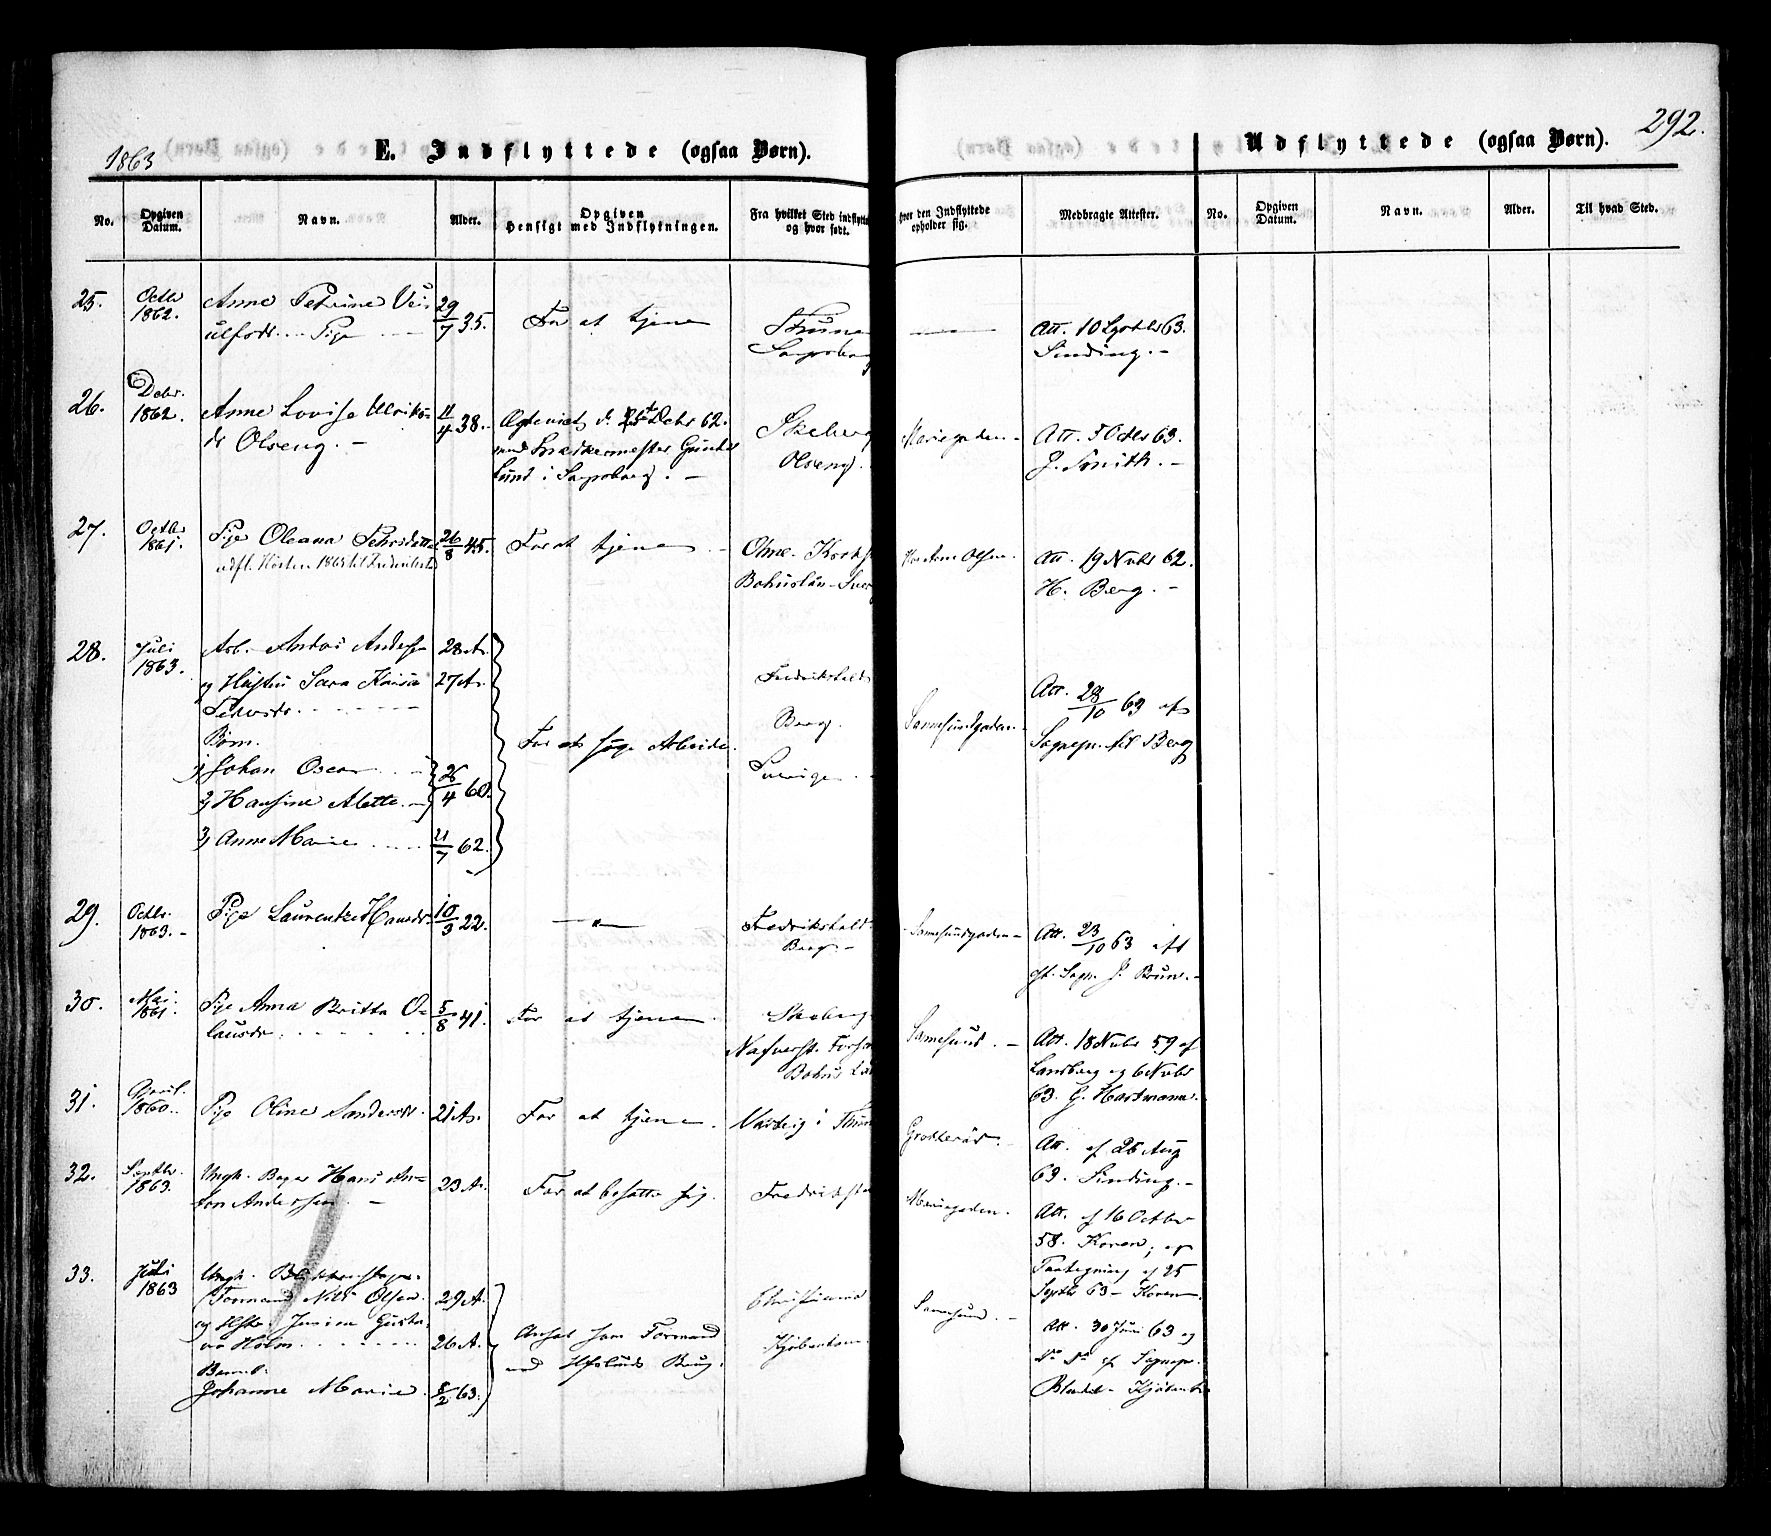 292.
1863
E. Indflyttede (ogsaa Børn).
Udflyttede (ogsaa Børn).
No.
Opgiven Datum.
Navn.
Alder.
Opgiven Hensigt med Indflytningen.
Fra hvilket Sted indflytte
og hvor født.
hvor den Indflyttede
opholder sig.
Medbragte Attester.
No.
Opgiven Datum.
Navn.
Alder.
Til hvad Sted.
25.
Octbr
1862.
Anne Petrine
Pige
29/7 35.
For at tjene
Thune
Sarpsborg
Att. 10 63.
Sinding.
26.
Debr.
1862.
Anne Lovise Ulriks
dr Olseng.
11/4 38.
Egteviet d. Debr 62.
med Gunder
Lund i Sarpsborg.
Skeberg
Olseng.
Mariegaden
Att. 5 Octbr 63.
J. Smith.
27.
Octbr
1861.
Pige Oleana
udfl. Hösten 1865 til
26/8 45.
For at tjene
Bohuslän
Olsen.
Att. 19 Nvbr 62.
H. Berg.
28.
Juli
1863.
Arb. Andres Anders
og Hustru Sara
Börn.
1) Johan Oscar
2) Hansine Alette
3) Anne Marie
28 A.
27 A.
26/4 60.
21/7 62.
For at søge Arbeide.
Fredrikshald
Berg.
Sverige
Sannesundgaden
Att. 28/10 63 af
Sognepr. til Berg
29.
Octbr.
1863.
Pige Laurentze Hansdr
10/3 22.
— " —
Fredrikshald
Berg
Sannesundgaden
Att. 23/10 63 af
Sogn. J. Brun.
30.
Mai
1861.
Pige Anna Britta O
lausdr.
5/8 41.
For at tjene
Skeberg
Bohus Län
Sannesund.
Att. 18 Nvbr 59 af
Landberg og 6 Nvbr
63. G. Hartmann.
31.
April.
1860.
Pige Oline Sandersdr.
21 A.
For at tjene.
Varteig i Thune
Att. af 26 Aug
63. Sinding.
32.
Septbr.
1863.
Ungk. Bager Hans An-
ton Anderssen
23 A.
For at besætte sig.
Fredrikstad
Mariegaden.
Att. af 16 Octbr
58. Koren; og
Paategning af 25
Septb 63 - Koren.
33.
Juli
1863
Ungk.
(Formand Nils Olsen.
og Hstr. Gusta
va Holm
Barn:
Johanne Marie.
29 A.
26 A.
8/2 63.
Ansat som Formand
ved Hafslunds Brug.
Christiania
Kjøbenhavn
Sannesund.
Att. 30 Juni 63 og
Do Do af Sognepr.
Kjöbenh